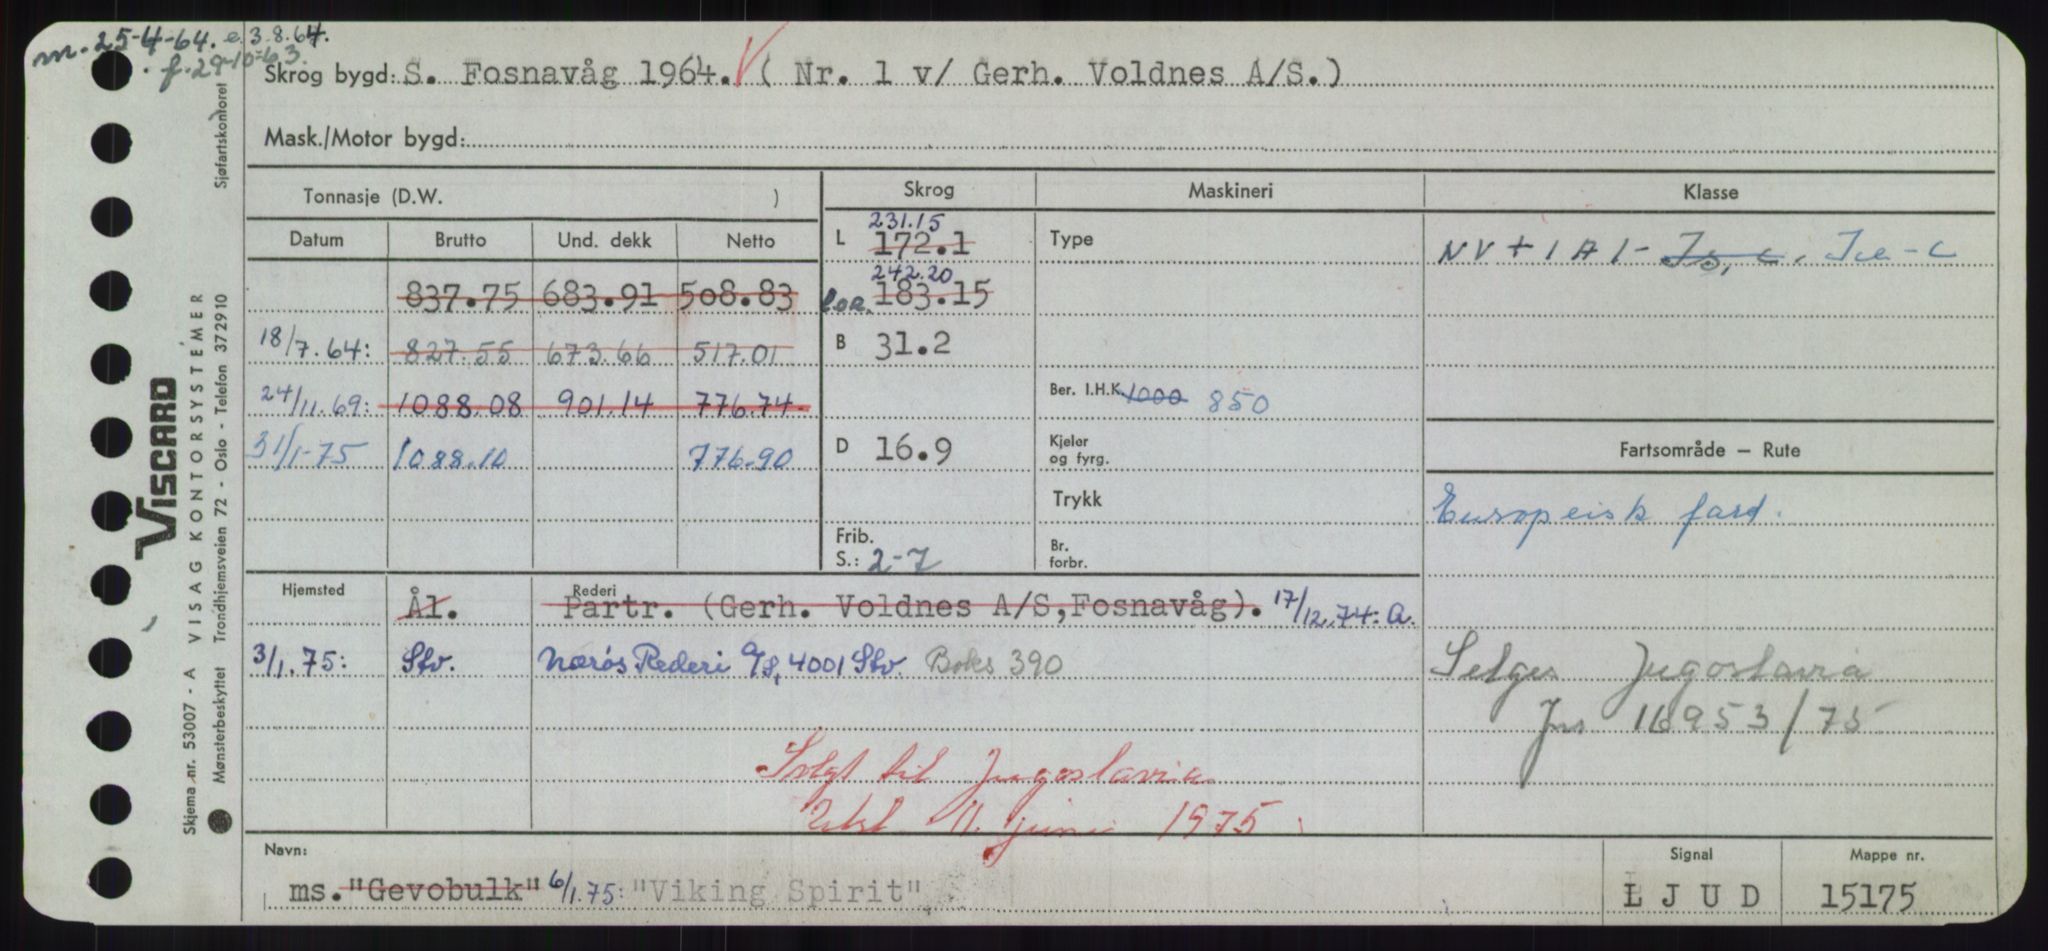 m. 25-4-64. e. 3.8.64.
f. 29-10-63.
Skrog bygd: S. Fosnavåg 1964. ( Nr. 1 v/ Gerh. Voldnes A/S.)
Mask./Motor bygd:
Tonnasje (D.W. )
Skrog Maskineri Klasse
Datum Brutto Und. dekk Netto
L 231.15
172.1
Type
NV + 1 A 1 - Is, c. Ice - C
242.20
837.75 683.91 508.83
loa. 183.15
18/7.64: 827.55 673.66 517.01
B 31.2
24/11.69: 1088.08 901.14 776.74
Ber. I.H.K. 1000 850
31/1-75 1088.10 776.90
D 16.9
Kjeler
og fyrg.
Fartsområde – Rute
Trykk
Europeisk fart.
Frib.
S.: 2-7
Br.
forbr.
Hjemsted Rederi
Ål. Partr. (Gerh. Voldnes A/S, Fosnavåg). 17/12.74: A.
3/1.75: Stv. Nærøs Rederi A/S, 4001 Stv. Boks 390
Selges Jugoslavia
Jns 16953/75
Solgt til Jugoslavia
11. juni 1975
Navn:
ms. "Gevobulk" 6/1.75: "Viking Spirit"
Signal
L J U D
Mappe nr.
15175
VISCARD
Skjema nr. 53007 - A VISAG KONTORSYSTEMER Sjøfartskontoret
Mønsterbeskyttet Trondhjemsveien 72 - Oslo - Telefon 372910